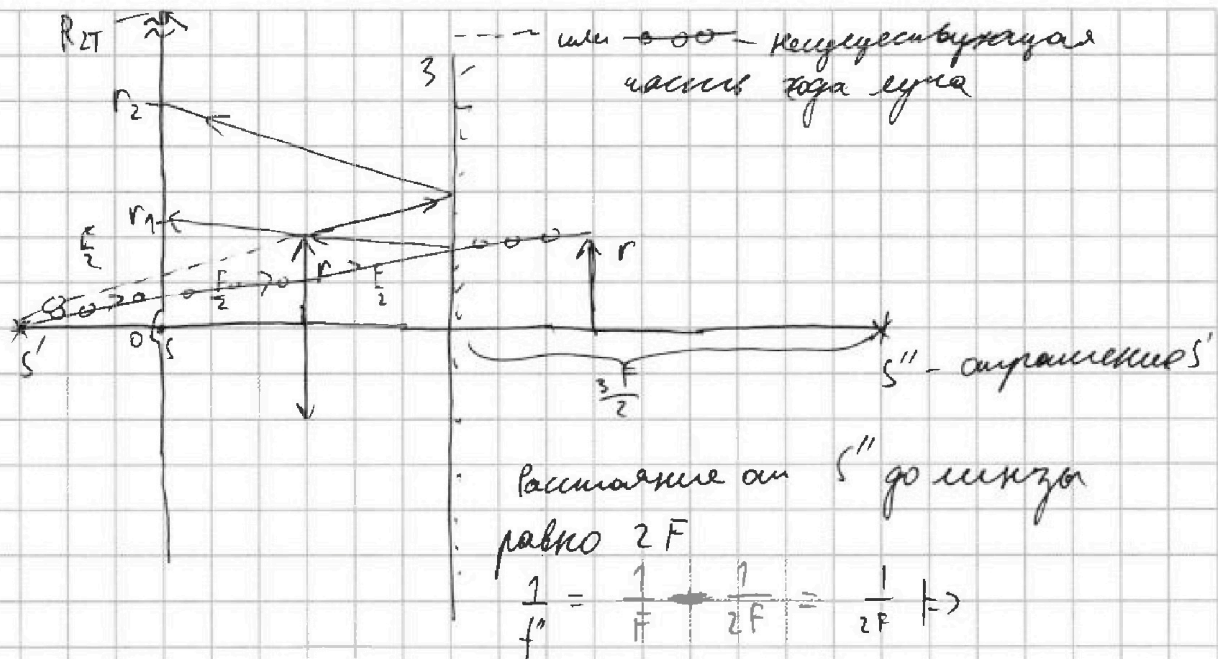 R₂T
---- или -o-oo- - несуществующая
часть хода луча
3
r₂
r₁
F/2
r
F/2
F/2
r
S'
0
S
3F/2
S'' - отражение S'
Расстояние от S'' до линзы
равно 2F
1/f'' = 1/F - 1/2F = 1/2F =>